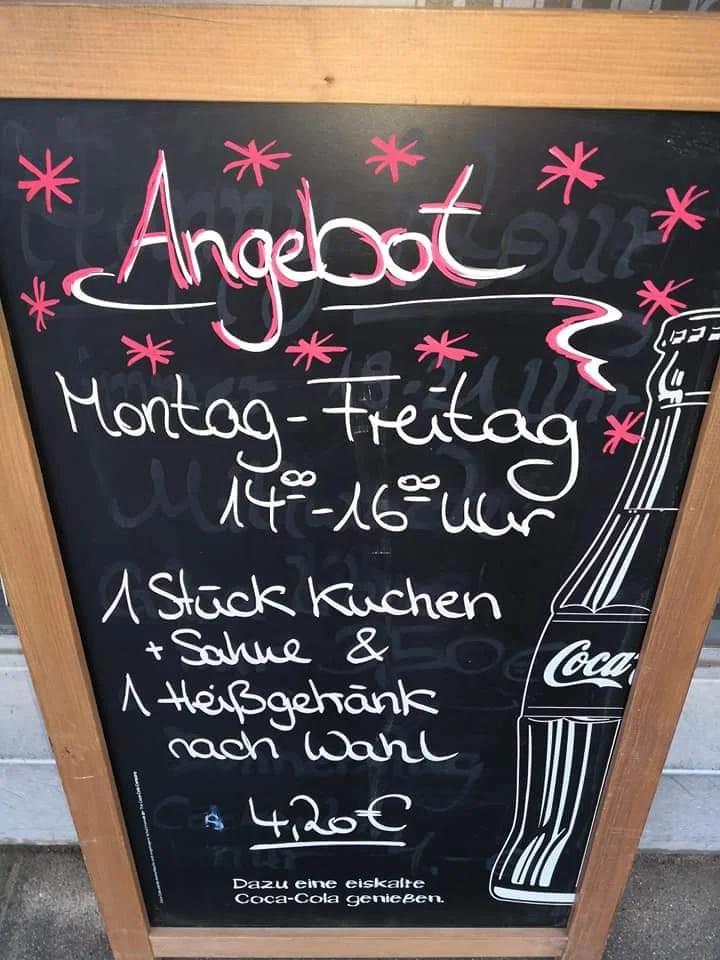 Angebot
Montag - Freitag
14⁰⁰ - 16⁰⁰ Uhr
1 Stück Kuchen
+ Sahne &
1 Heißgetränk
nach Wahl
4,20€
Coca-
Dazu eine eiskalte
Coca-Cola genießen.